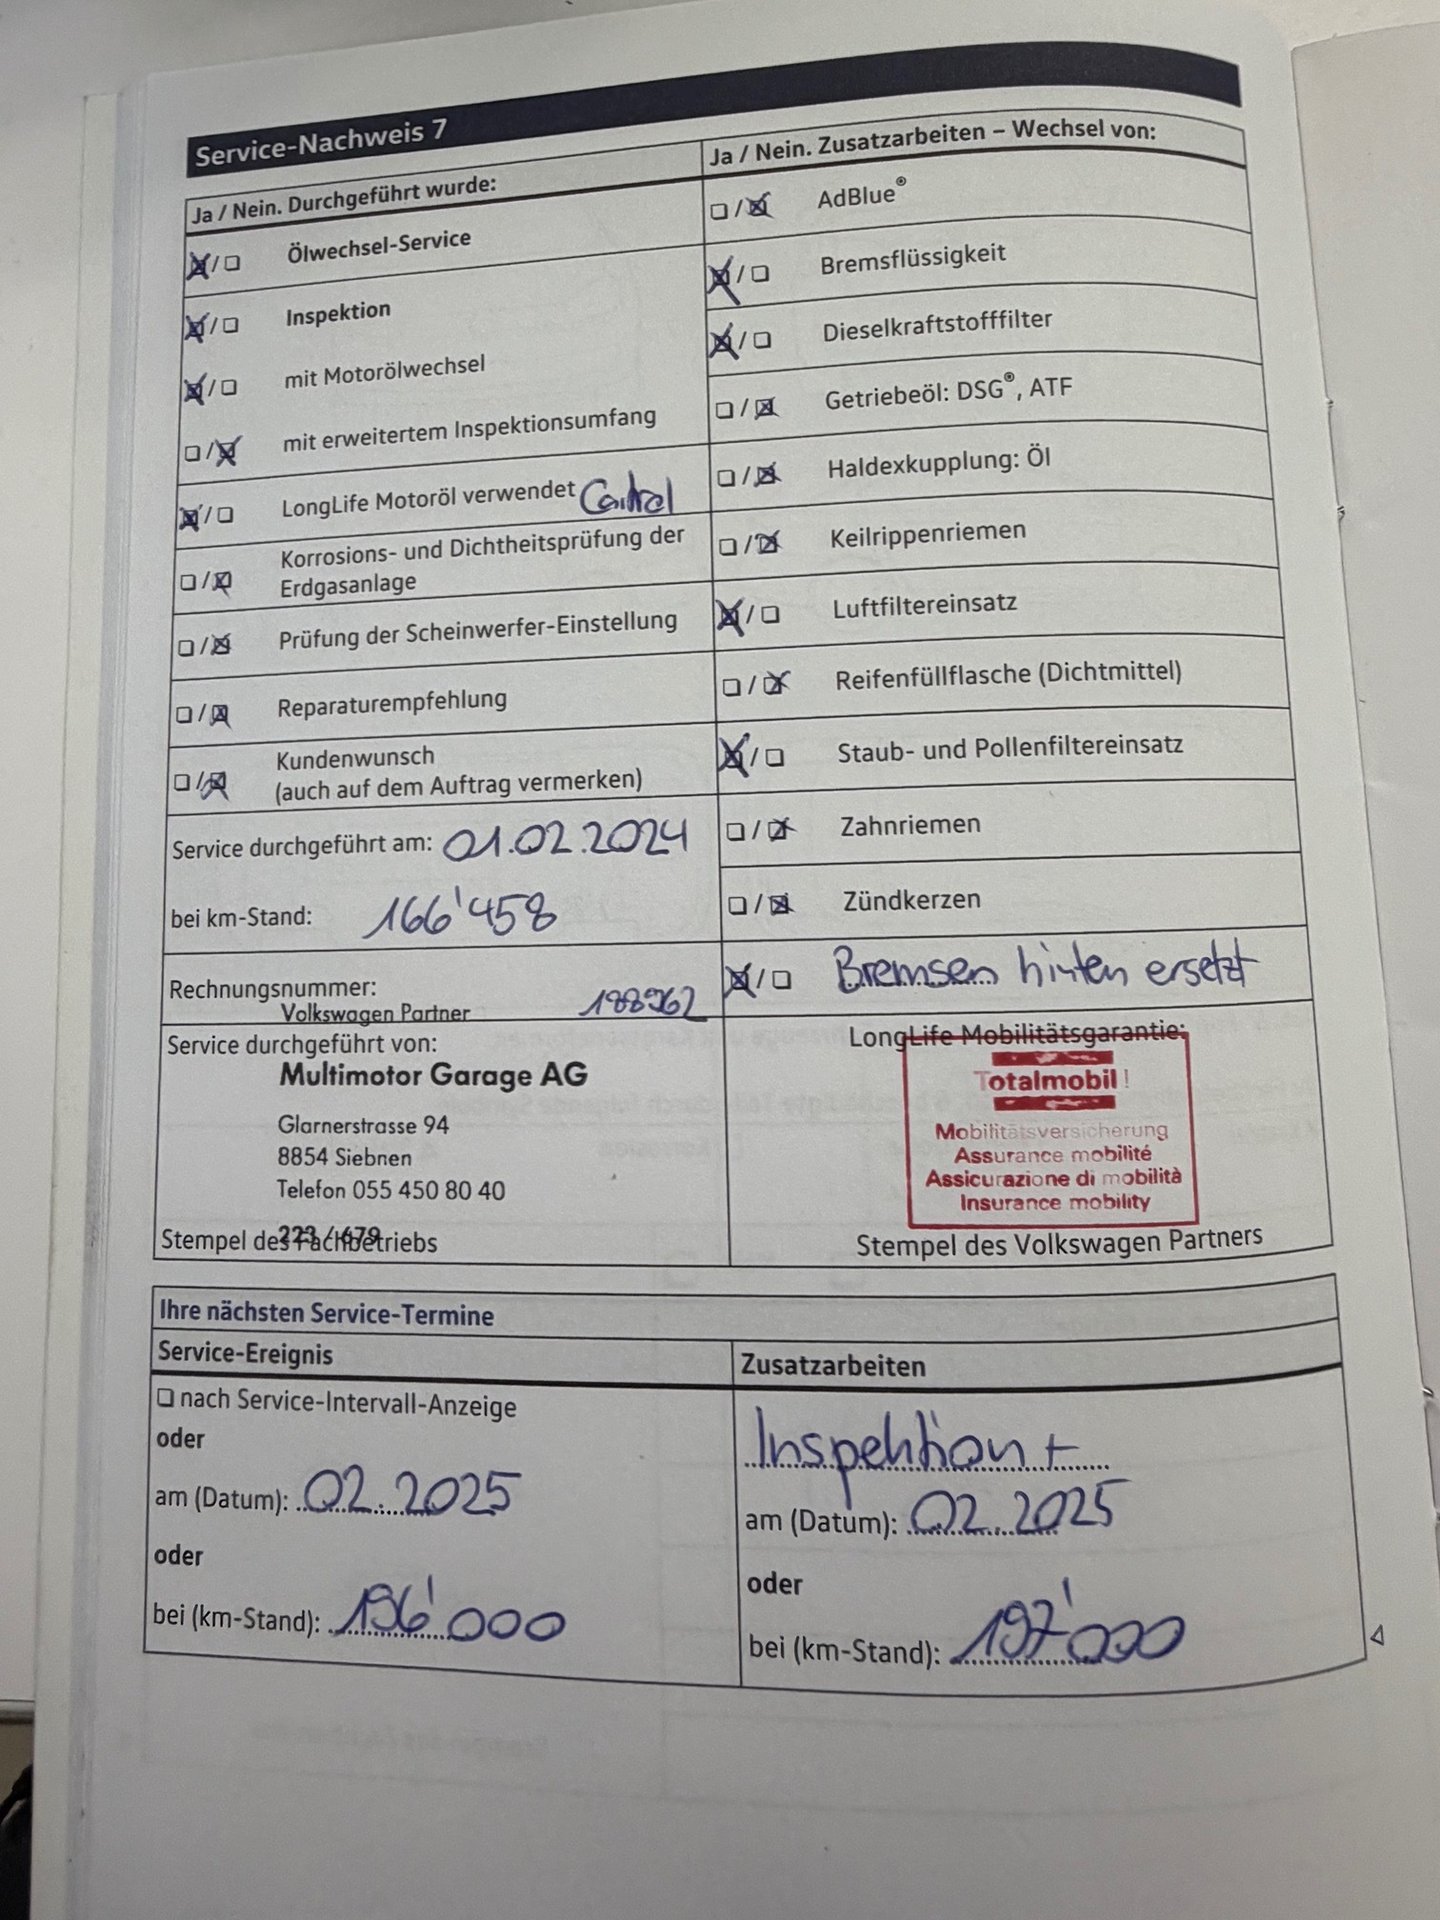 Service-Nachweis 7
Ja / Nein. Durchgeführt wurde:
Ölwechsel-Service
Inspektion
mit Motorölwechsel
mit erweitertem Inspektionsumfang
LongLife Motoröl verwendet
Korrosions- und Dichtheitsprüfung der
Erdgasanlage
Prüfung der Scheinwerfer-Einstellung
Reparaturempfehlung
Kundenwunsch
(auch auf dem Auftrag vermerken)
Service durchgeführt am: 01.02.2024
bei km-Stand: 166'458
Rechnungsnummer: 188962
Volkswagen Partner
Service durchgeführt von:
Multimotor Garage AG
Glarnerstrasse 94
8854 Siebnen
Telefon 055 450 80 40
223 / 679
Stempel des Fachbetriebs
Ja / Nein. Zusatzarbeiten – Wechsel von:
AdBlue®
Bremsflüssigkeit
Dieselkraftstofffilter
Getriebeöl: DSG®, ATF
Haldexkupplung: Öl
Keilrippenriemen
Luftfiltereinsatz
Reifenfüllflasche (Dichtmittel)
Staub- und Pollenfiltereinsatz
Zahnriemen
Zündkerzen
Bremsen hinten ersetzt
LongLife Mobilitätsgarantie:
Totalmobil!
Mobilitätsversicherung
Assurance mobilité
Assicurazione di mobilità
Insurance mobility
Stempel des Volkswagen Partners
Ihre nächsten Service-Termine
Service-Ereignis
nach Service-Intervall-Anzeige
oder
am (Datum): 02.2025
oder
bei (km-Stand): 196'000
Zusatzarbeiten
Inspektion +
am (Datum): 02.2025
oder
bei (km-Stand): 197'000